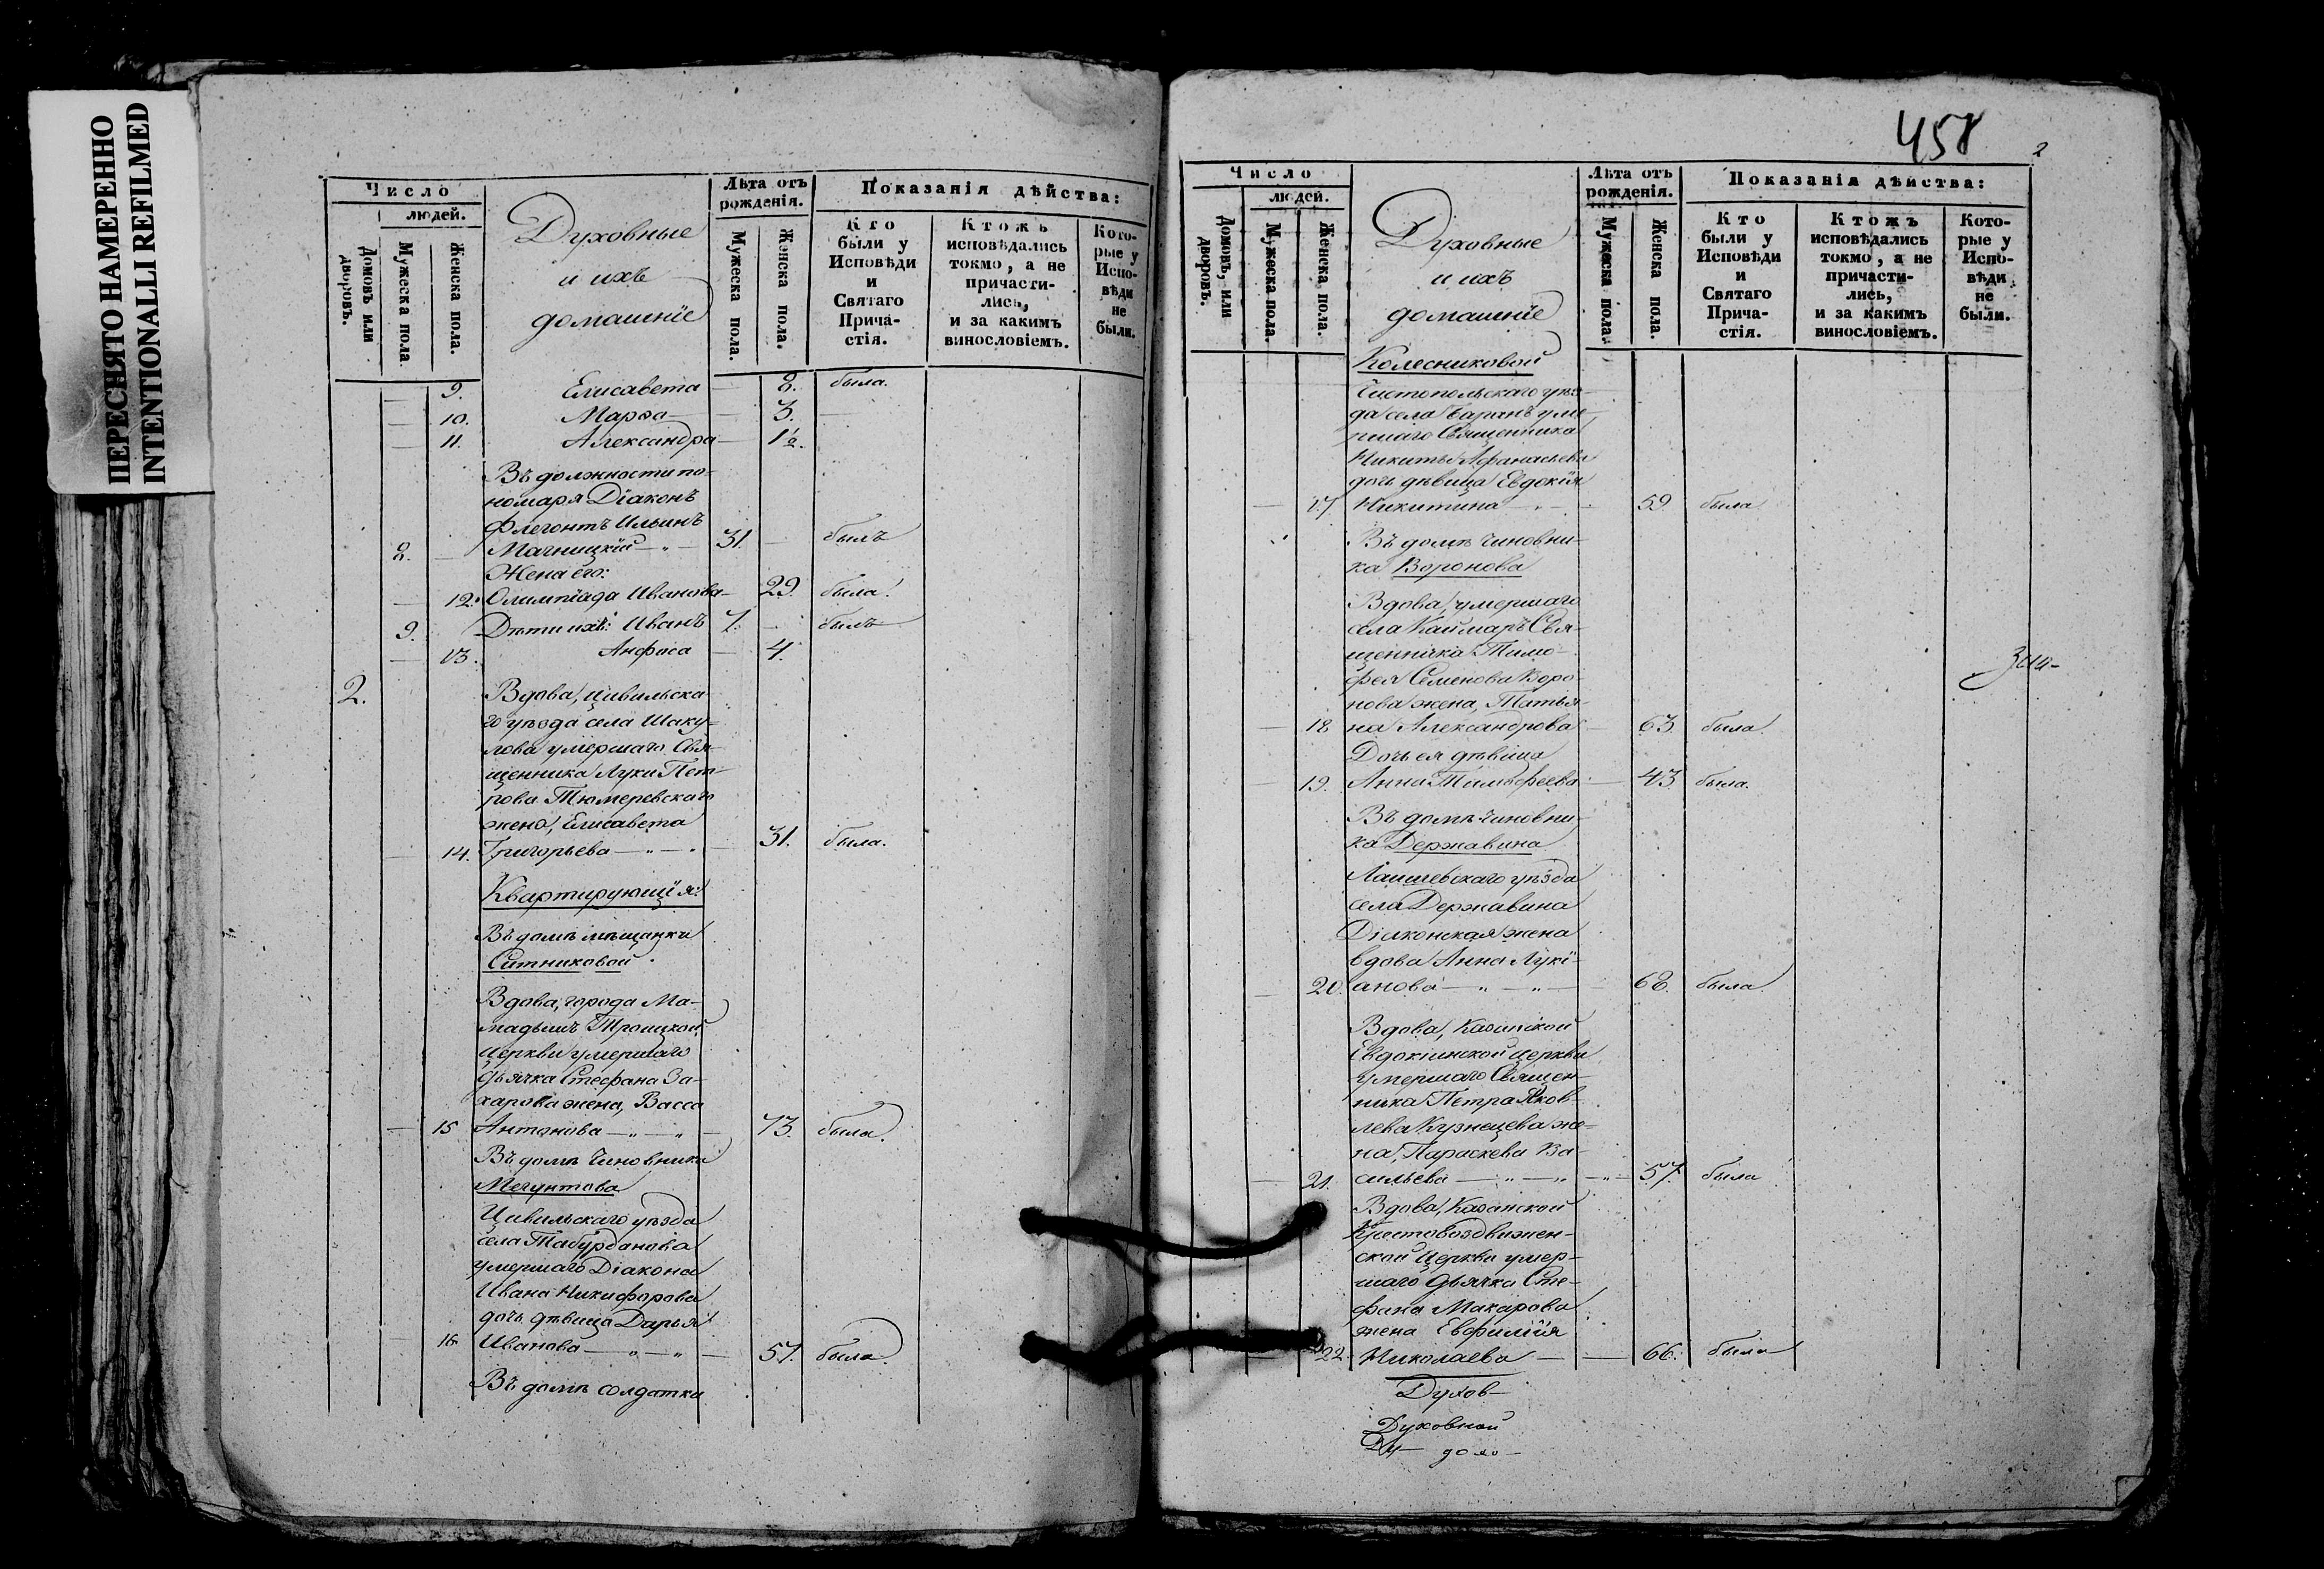 ПЕРЕСНЯТО НАМЕРЕННО
INTENTIONALLI REFILMED
Число
людей.
Домовъ или дворовъ.
Мужеска пола
Женска пола.
Духовные
и ихъ
домашніе
Лѣта отъ рожденія.
Мужеска пола.
Женска пола.
Показанія дѣйства:
Кто были у Исповѣди и Святаго Прича-стія.
Ктожъ исповѣдались токмо, а не причасти-лись, и за какимъ винословіемъ.
Кото-рые у Испо-вѣди не были.
9. Елисавета — 8. была.
— 10. Марѳа — 3. —
— 11. Александра — 1½.
Въ должности по-
номаря Діаконъ
Флегонтъ Ильинъ
8. — Мачницкій — „ — 31. — былъ
Жена его:
— 12. Олимпіада Иванова — 29. была.
9. Дѣти ихъ: Иванъ 7. — былъ
— 13. Анфиса — 4.
2. Вдова, Цивильска-
го уѣзда села Шаку-
лова умершаго Свя-
щенника Луки Пет-
рова Тюмеревскаго
жена, Елисавета
— 14. Григорьева — „ — „ — 31. была.
Квартирующія:
Въ домѣ мѣщанки
Ситниковой.
Вдова, города Ма-
мадышъ Троицкой
церкви умершаго
дьячка Стефана За-
харова жена, Васса
— 15 Антонова — „ — „ — 73. была.
Въ домѣ Чиновника
Мегунтова
Цивильскаго уѣзда
села Табурданова
умершаго Діакона
Ивана Никифорова
дочь дѣвица Дарья
— 16. Иванова — „ — „ — 57. была.
Въ домѣ солдатки
458
2
Число
людей.
Домовъ, или дворовъ.
Мужеска пола.
Женска пола.
Духовные
и ихъ
домашніе
Лѣта отъ рожденія.
Мужеска пола.
Женска пола.
Показанія дѣйства:
Кто были у Исповѣди и Святаго Прича-стія.
Ктожъ исповѣдались токмо, а не причасти-лись, и за какимъ винословіемъ.
Кото-рые у Испо-вѣди не были.
Колесниковой
Чистопольскаго уѣз-
да села Баранъ уме-
ршаго Священника
Никиты Афанасьева
дочь дѣвица Евдокія
— 17 Никитина — „ — 59 была
Въ домѣ Чиновни-
ка Воронова
Вдова, умершаго
села Каймаръ Свя-
щенника Тимо-
фея Семенова Воро-
нова жена, Татья-
— 18 на Александрова — 63 была.
Дочь ея дѣвица
— 19. Анна Тимофеева — 43 была.
Въ домѣ Чиновни-
ка Державина
Лаишевскаго уѣзда
села Державина
Діаконская жена
вдова Анна Лукі-
— 20. анова — „ — „ — 68. была
Вдова, Казанской
Евдокіинской церкви
умершаго Священ-
ника Петра Яков-
лева Кузнецева же-
на, Параскева Ва-
— 21. сильева — „ — „ — „ — 57. была
Вдова, Казанской
Крестовоздвижен-
ской Церкви умер-
шаго дьячка Сте-
фана Макарова
жена Евфимія
— 22. Николаева — — 66. была
Духов-
Духовной